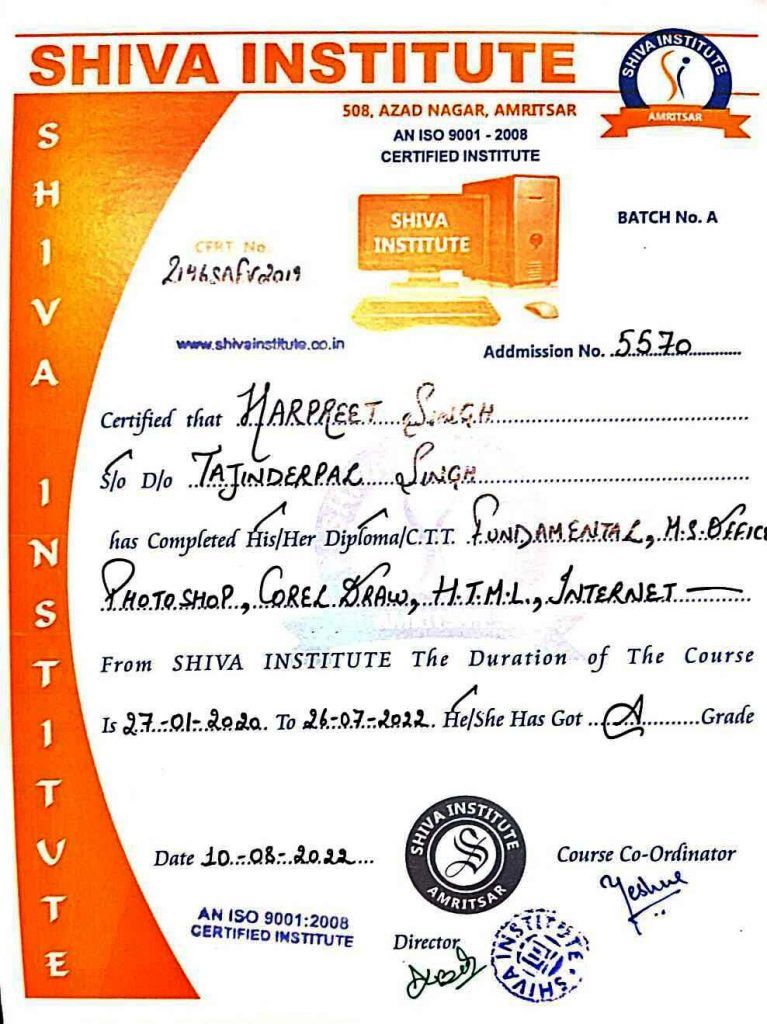 SHIVA INSTITUTE
SHIVA INSTITUTE
AMRITSAR
508, AZAD NAGAR, AMRITSAR
AN ISO 9001 - 2008
CERTIFIED INSTITUTE
SHIVA INSTITUTE
SHIVA
INSTITUTE
BATCH No. A
CERT No.
www.shivainstitute.co.in
Addmission No. 5570
Certified that HARPREET SINGH
S/o D/o TAJINDERPAL SINGH
has Completed His/Her Diploma/C.T.T. FUNDAMENTAL, M.S. OFFICE
PHOTOSHOP, COREL DRAW, H.T.M.L., INTERNET
From SHIVA INSTITUTE The Duration of The Course
Is 27-01-2020 To 26-07-2022. He/She Has Got A Grade
SHIVA INSTITUTE
AMRITSAR
Date 10-08-2022
Course Co-Ordinator
AN ISO 9001:2008
CERTIFIED INSTITUTE
Director
SHIVA INSTITUTE